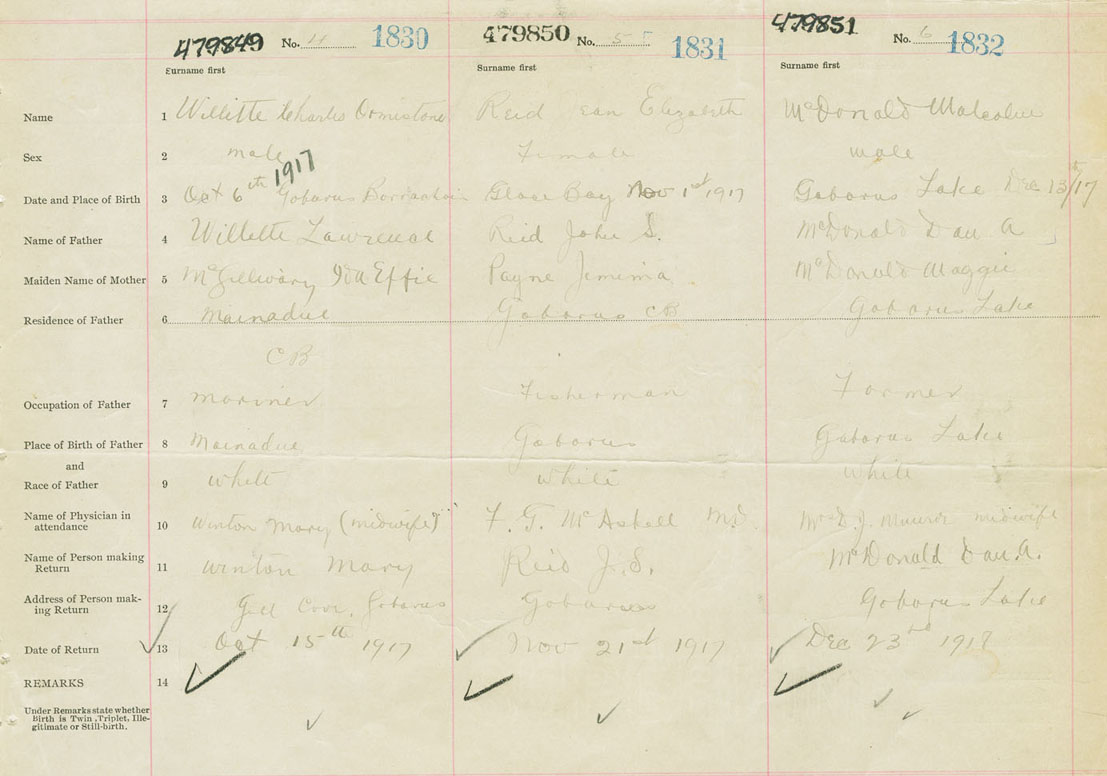 479849 No. 4 1830 479850 No. 5 1831 479851 No. 6 1832
Surname first Surname first Surname first
Name 1 Willitte Charles Ormistone Reid Jean Elizabeth McDonald Malcolm
Sex 2 male Female male
Date and Place of Birth 3 Oct 6th 1917 Gabarus Glace Bay Nov 1st 1917 Gabarus Lake Dec 13/17
Name of Father 4 Willitte Lawrence Reid John S. McDonald Dan A
Maiden Name of Mother 5 McGillivary Ida Effie Payne Jemima McDonald Maggie
Residence of Father 6 Mainadue Gabarus CB Gabarus Lake
CB
Occupation of Father 7 mariner Fisherman Farmer
Place of Birth of Father 8 Mainadue Gabarus Gabarus Lake
and
Race of Father 9 White White White
Name of Physician in
attendance 10 Winton Mary (midwife) F. T. McAskell MD Munroe midwife
Name of Person making
Return 11 Winton Mary Reid J.S. McDonald Dan A.
Address of Person mak-
ing Return 12 Gull Cove, Gabarus Gabarus Gabarus Lake
Date of Return 13 Oct 15th 1917 Nov 21st 1917 Dec 23rd 1917
REMARKS 14
Under Remarks state whether
Birth is Twin, Triplet, Ille-
gitimate or Still-birth.